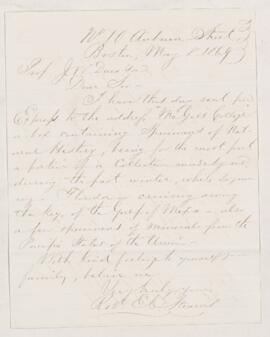 No 10 Auburn Street
Boston, May 1869
Prof J W Dawson
Dear Sir -
I have this day sent per
Express to the address McGill College
a box containing Specimens of Nat
ural History, being for the most part
a portion of a Collection made by me
during the past winter, while
in Florida or cruising among
the Keys of the Gulf of Mexico - also
a few specimens of Minerals from the
Pacific States of the Union -
With kind feelings to yourself &
family, believe me
Very truly yours
Robt E C Stearns